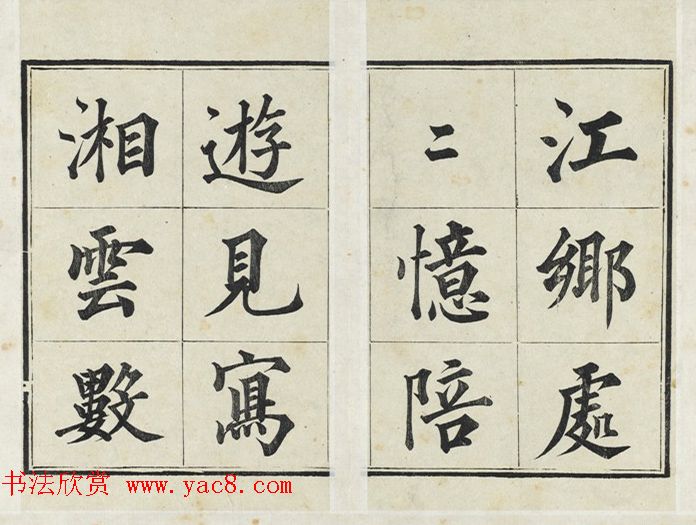 江鄉處
二憶陪
遊見寫
湘雲數
书法欣赏 www.yac8.com